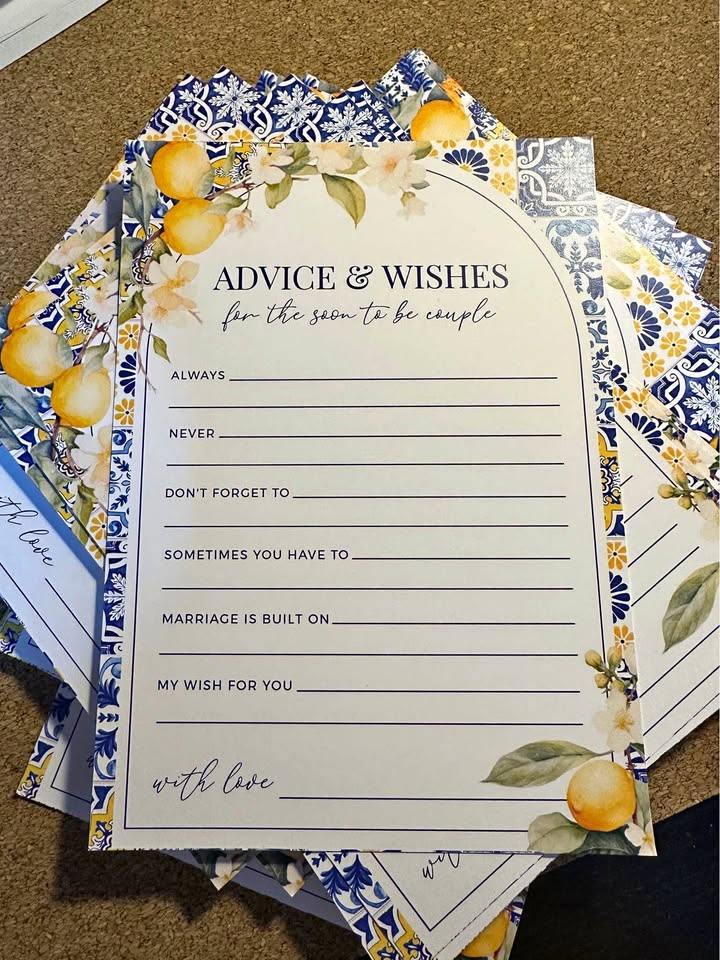 ADVICE & WISHES
for the soon to be couple
ALWAYS
NEVER
DON'T FORGET TO
SOMETIMES YOU HAVE TO
MARRIAGE IS BUILT ON
MY WISH FOR YOU
with love
love